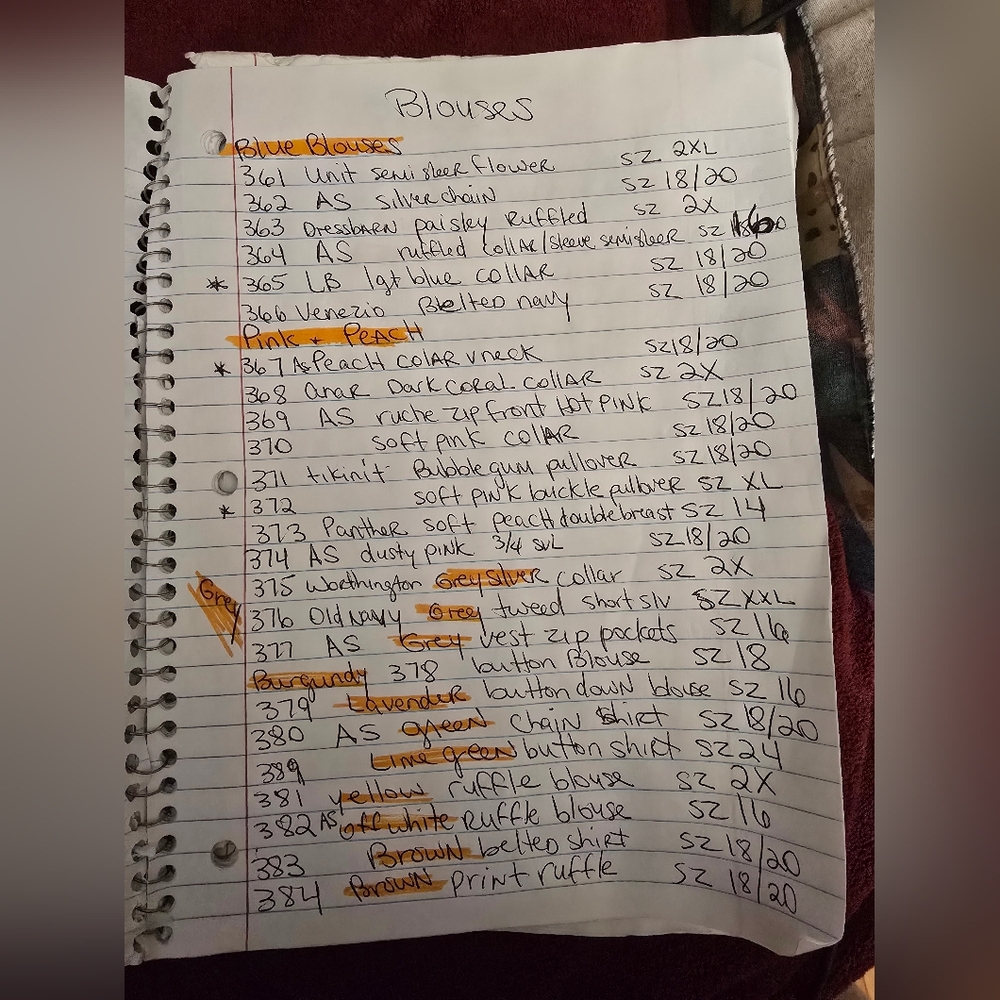 Blouses
Blue Blouses
361 Unit semi sleer flower SZ 2XL
362 AS silver chain SZ 18/20
363 DressbARN paisley Ruffled SZ 2X
364 AS ruffled collAR/sleeve semisleer SZ
* 365 LB lgt blue collAR SZ 18/20
366 Venezio Belted navy SZ 18/20
Pink + PEACH
* 367 AS PEACH COLAR V neck SZ 18/20
368 anar Dark coral collAR SZ 2X
369 AS ruche zip front Hot PINK SZ 18/20
370 soft pink collAR SZ 18/20
371 tikinit Bubble gum pullover SZ 18/20
* 372 soft PINK buckle pullover SZ XL
373 PantheR soft peach doublebreast SZ 14
374 AS dusty PINK 3/4 SVL SZ 18/20
Grey
375 Worthington Grey Silver collar SZ 2X
376 Old NAVY Grey tweed short slv SZ XXL
377 AS Grey vest zip pockets SZ 16
Burgundy 378 button Blouse SZ 18
379 LavendeR button down blouse SZ 16
380 AS green Chain Shirt SZ 18/20
389 Lime green button shirt SZ 24
381 yellow ruffle blouse SZ 2X
382 AS off white Ruffle blouse SZ 16
383 BROWN belted shirt SZ 18/20
384 BROWN print ruffle SZ 18/20